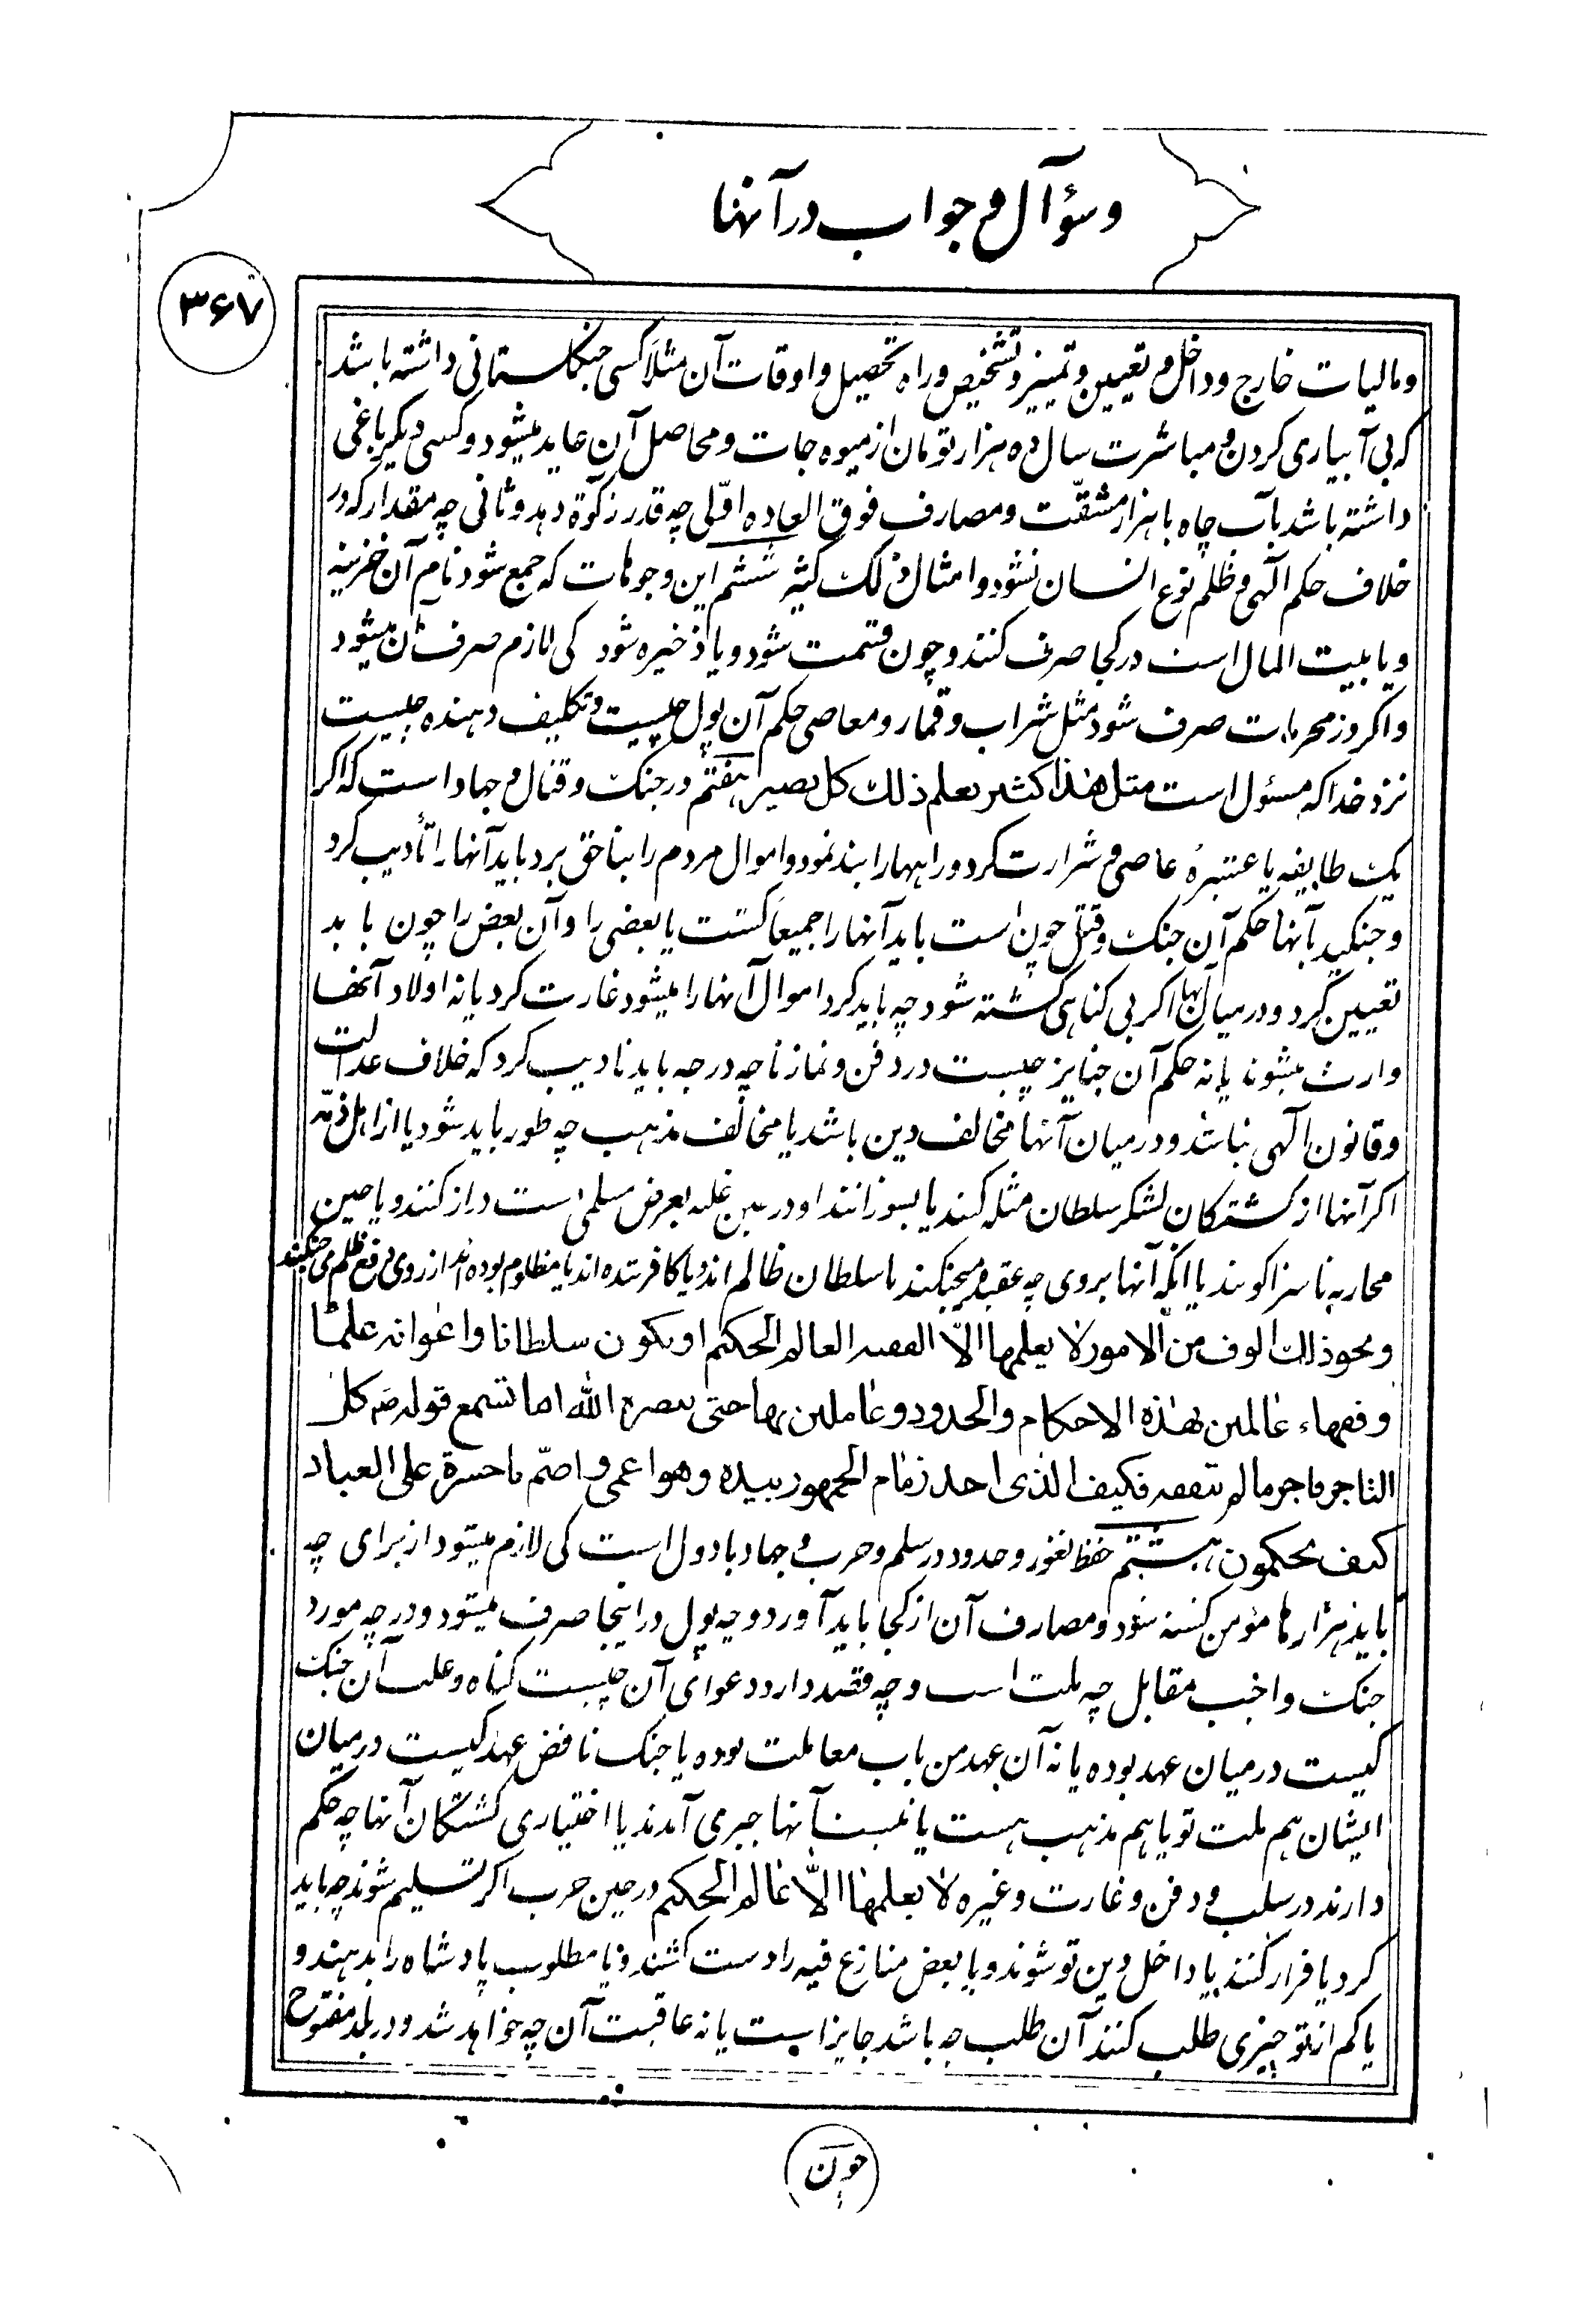 وسؤآل و جواب در آنها
۳۶۷
و مالیات خارج و داخل و تعیین و تمییز و تشخیص و راه تحصیل و اوقات آن مثلاً کسی جنکلستانی داشته باشد
که بی آبیاری کردن و مباشرت سال ده هزار تومان از میوه جات و محاصل آن عاید میشود و کسی دیکر باغی
داشته باشد بآب چاه با هزار مشقّت و مصارف فوق العاده اوّلی چه قدر زکوة دهد و ثانی چه مقدار که در
خلاف حکم الٓهی و ظلم نوع انسان نشود و امثال ذلک کثیر ششم این وجوهات که جمع شود نام آن خزینه
و یا بیت المال است در کجا صرف کنند و چون قسمت شود و یا ذخیره شود کی لازم صرف آن میشود
و اکر در محرمات صرف شود مثل شراب و قمار و معاصی حکم آن پول چیست و تکلیف دهنده چیست
نزد خدا که مسئول است مثل هذا کثیر یعلم ذلک کل بصیر هفتم در جنک و قتال و جهاد است که اکر
یک طایفه یا عشیرهٔ عاصی و شرارت کرد و راهها را بند نمود و اموال مردم را بناحق برد باید آنها را تأدیب کرد
و جنکید بآنها حکم آن جنک و قتل چون است باید آنها را جمیعاً کشت یا بعضی را و آن بعض را چون باید
تعیین کرد و در میان آنها اکر بی کناهی کشته شود چه باید کرد اموال آنها را میشود غارت کرد یا نه اولاد آنها
وارث میشوند یا نه حکم آن جنایز چیست در دفن و نماز تا چه درجه باید تادیب کرد که خلاف عدالت
و قانون الٓهی نباشد و در میان آنها مخالف دین باشد یا مخالف مذهب چه طور باید شود یا از اهل ذمّه
اکر آنها از کشتکان لشکر سلطان مثله کنند یا بسوزانند او در عین غلبه بعرض مسلمی دست دراز کنند و یا حین
محاربه ناسزا کویند یا اینکه آنها بروی چه عقیده میجنکند با سلطان ظالم اند و یا کافر شده اند یا مظلوم بوده اند از روی دفع ظلم می جنکیند
و نحو ذلک الوف من الامور لا یعلمها الاّ الفقیه العالم الحکیم او یکون سلطانا و اعوانه علمآء
و فقهاء عالمین بهذه الاحکام و الحدود و عاملین بها حتی ینصره الله اما تسمع قوله ص کل
التاجر فاجر ما لم یتفقه فکیف الذی اخذ زمام الجمهور بیده و هو اعمی و اصمّ یا حسرة علی العباد
کیف یحکمون هشتم حفظ ثغور و حدود در سلم و حرب و جهاد با دول است کی لازم میشود از برای چه
باید هزارها مؤمن کشته شود و مصارف آن از کجا باید آورد و چه پول در اینجا صرف میشود و در چه مورد
جنک واجب مقابل چه ملت است و چه قصد دارد دعوای آن چیست کناه و علت آن جنک
کیست در میان عهد بوده یا نه آن عهد من باب معاملت بوده یا جنک ناقض عهد کیست در میان
ایشان هم ملت تو یا هم مذهب هست یا نیست آنها جبری آمدند یا اختیاری کشتکان آنها چه حکم
دارند در سلب و دفن و غارت و غیره لا یعلمها الاّ عالم الحکیم در حین حرب اکر تسلیم شوند چه باید
کرد یا فرار کنند یا داخل دین تو شوند و یا بعض منازع فیه را دست کشند و یا مطلوب پادشاه را بدهند و
یا کم از تو چیزی طلب کنند آن طلب چه باشد جایز است یا نه عاقبت آن چه خواهد شد و در بلد مفتوح
چون